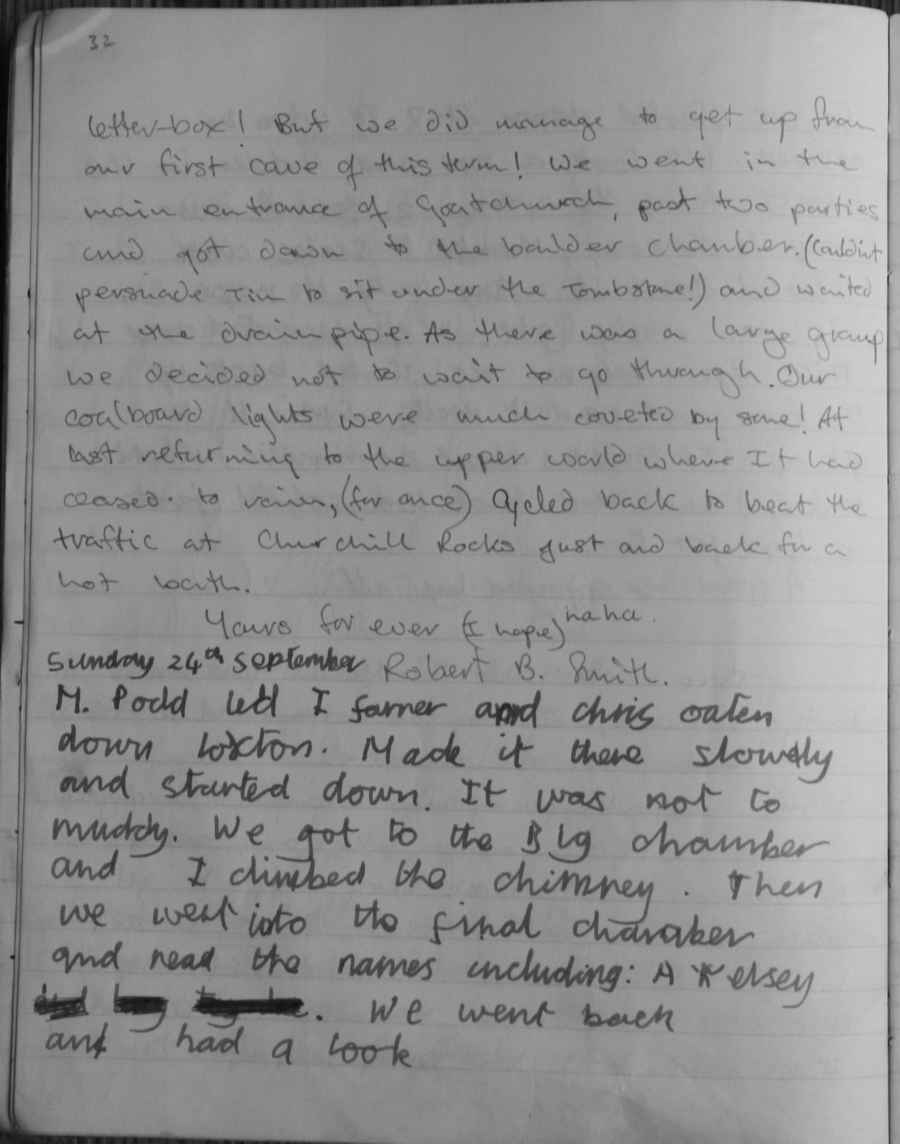 32
letter-box! But we did manage to get up from
our first cave of this term! We went in the
main entrance of Goatchurch, past two parties
and got down to the boulder chamber. (Couldn't
persuade Tim to sit under the Tombstone!) and waited
at the drainpipe. As there was a large group
we decided not to wait to go through. Our
coalboard lights were much coveted by some! At
last returning to the upper world where It had
ceased to rain, (for once) Cycled back to beat the
traffic at Churchill Rocks just and back for a
hot bath.
Yours for ever (I hope) haha.
Robert B. Smith.
Sunday 24th September
M. Podd led I farner and chris oaten
down loxton. Made it there slowly
and started down. It was not to
muddy. We got to the BIg chamber
and I climbed the chimney. Then
we went into the final chamber
and read the names including: A Kelsey
. We went back
and had a look